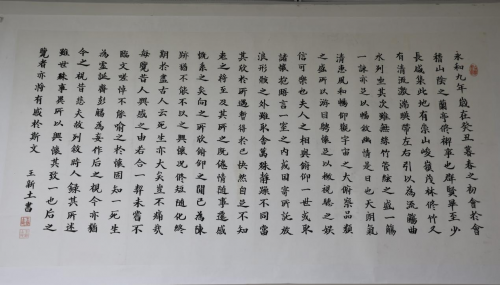 永和九年歲在癸丑暮春之初會於會
稽山陰之蘭亭脩禊事也群賢畢至少
長咸集此地有崇山峻嶺茂林脩竹又
有清流激湍映帶左右引以為流觴曲
水列坐其次雖無絲竹管絃之盛一觴
一詠亦足以暢敘幽情是日也天朗氣
清惠風和暢仰觀宇宙之大俯察品類
之盛所以遊目騁懷足以極視聽之娛
信可樂也夫人之相與俯仰一世或取
諸懷抱晤言一室之內或因寄所託放
浪形骸之外雖取舍萬殊靜躁不同當
其欣於所遇暫得於己快然自足不知
老之將至及其所之既倦情隨事遷感
慨系之矣向之所欣俯仰之間已為陳
跡猶不能不以之興懷況脩短隨化終
期於盡古人云死生亦大矣豈不痛哉
每覽昔人興感之由若合一契未嘗不
臨文嗟悼不能喻之於懷固知一死生
為虛誕齊彭殤為妄作后之視今亦猶
今之視昔悲夫故列敘時人錄其所述
雖世殊事異所以興懷其致一也后之
覽者亦將有感於斯文 王新土書